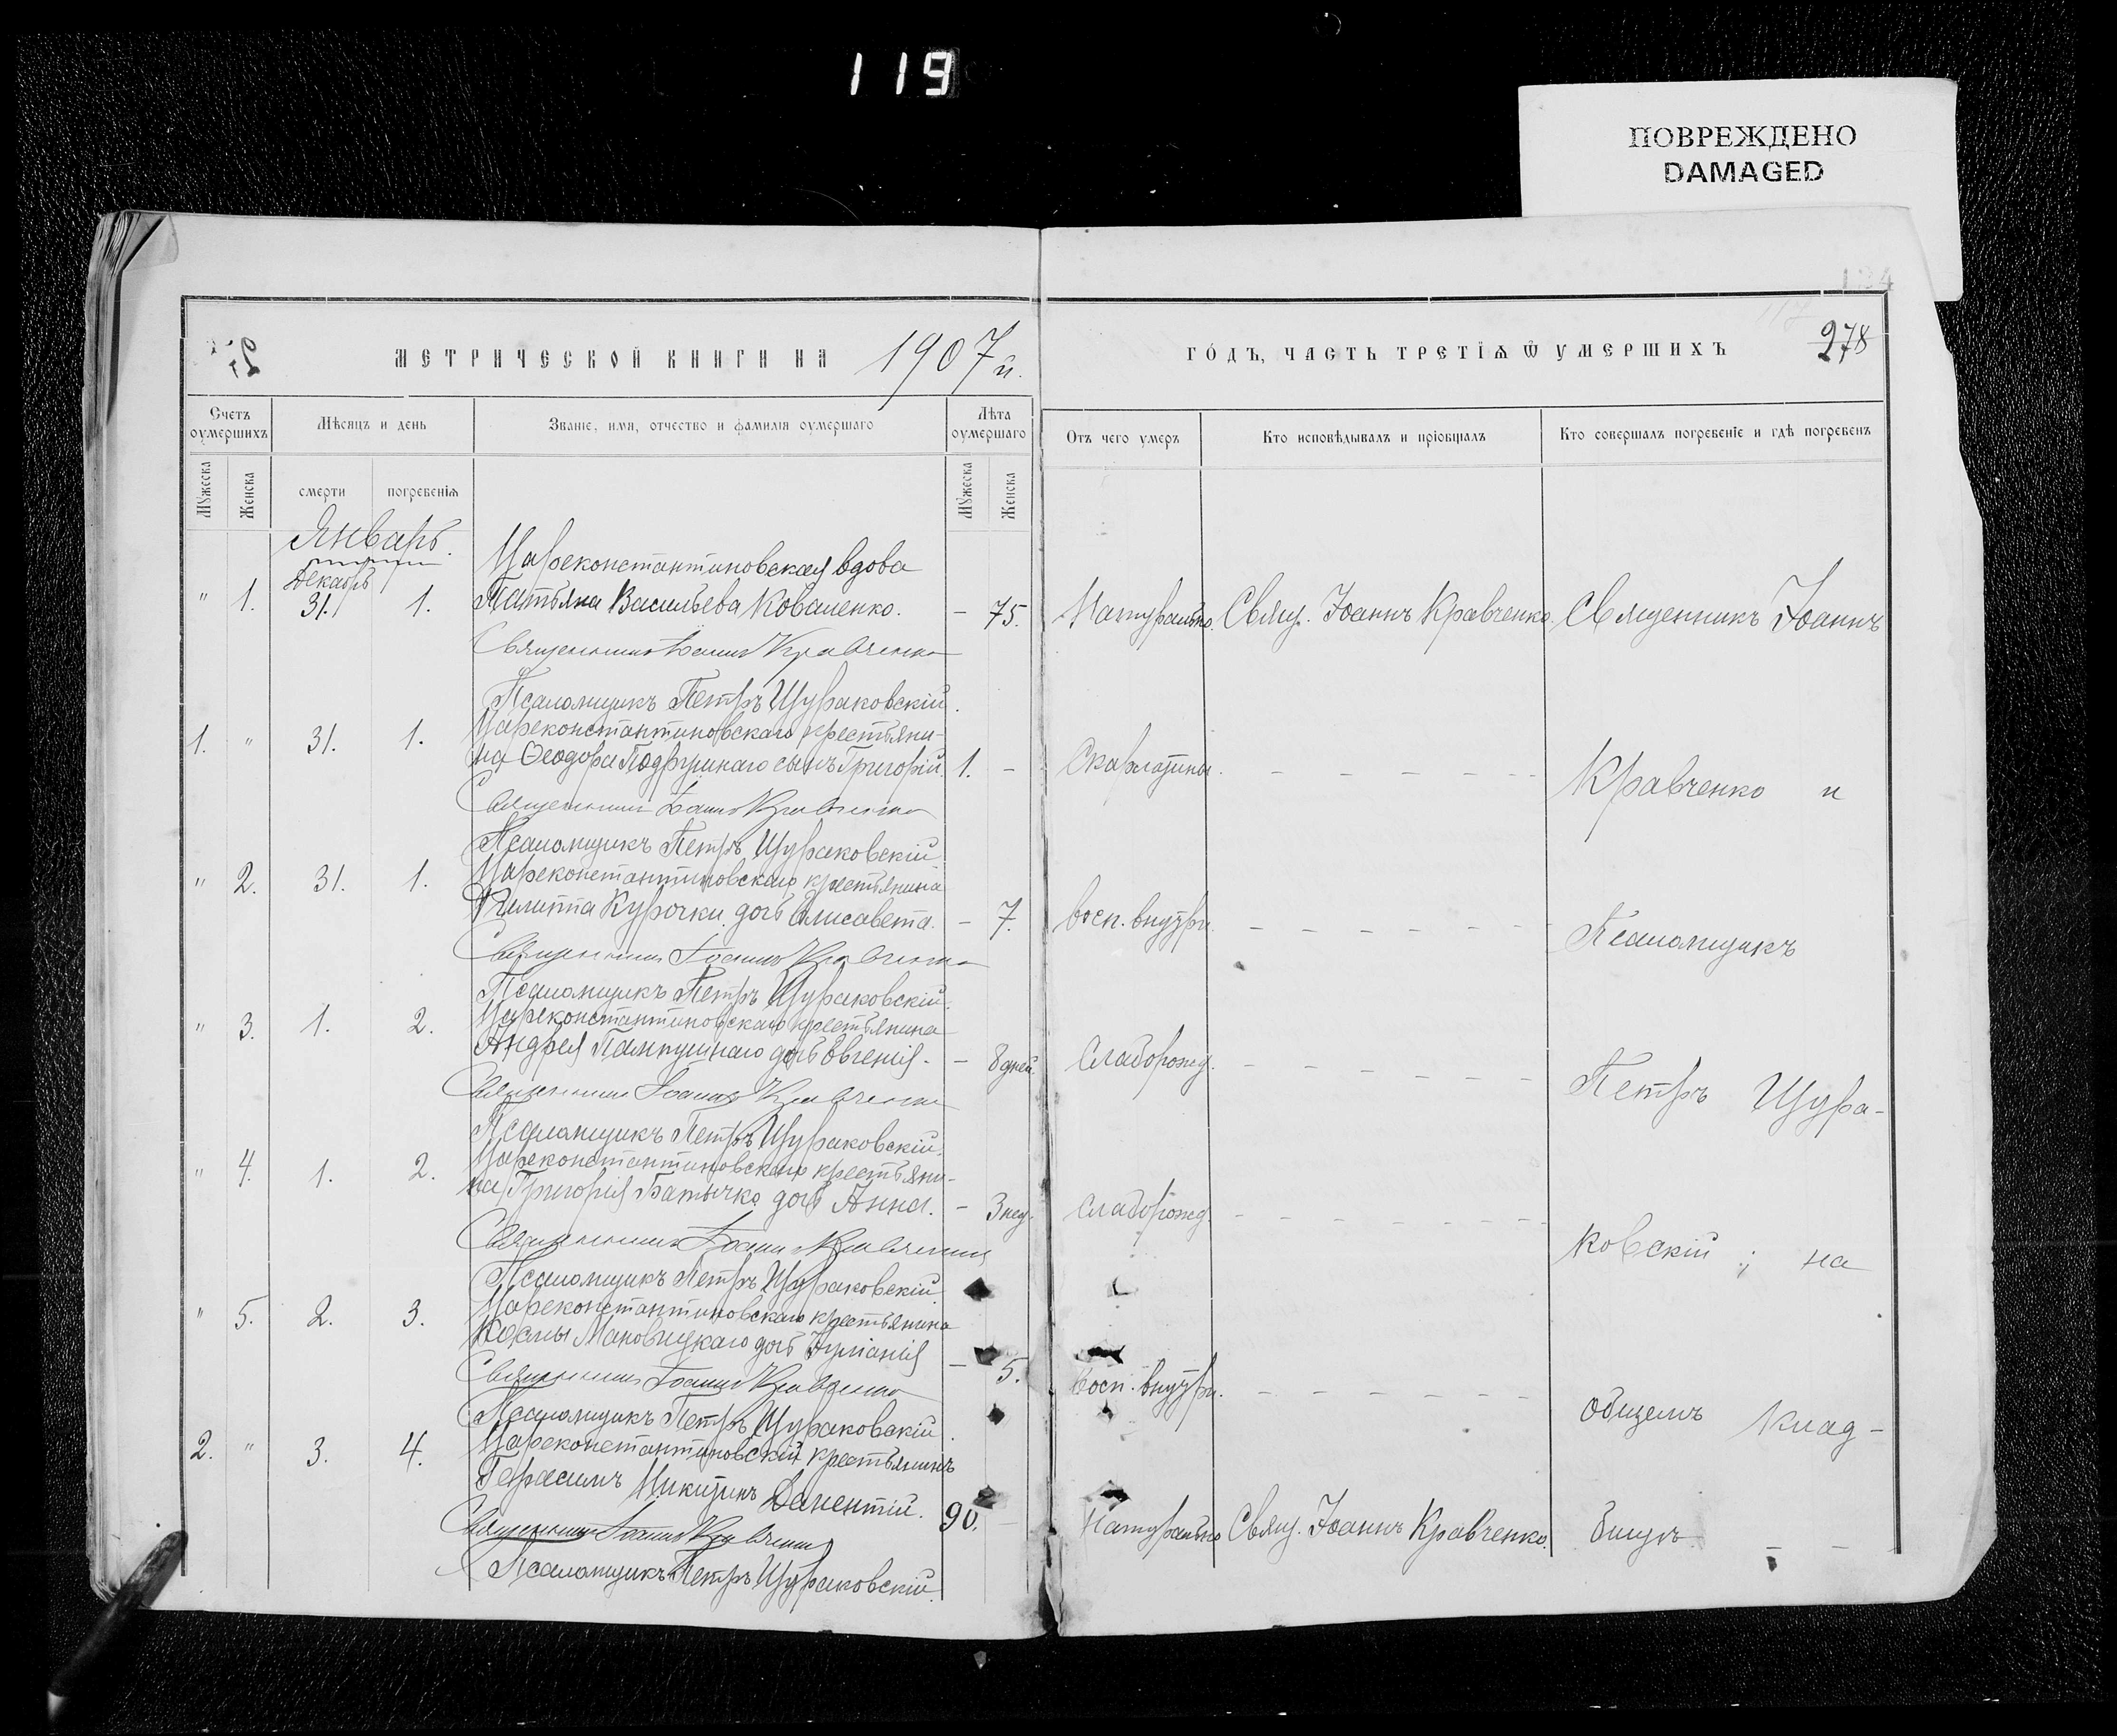 119
ПОВРЕЖДЕНО
DAMAGED
МЕТРИЧЕСКОЙ КНИГИ НА 1907й.
ГОДЪ, ЧАСТЬ ТРЕТІѦ Ѿ УМЕРШИХЪ
278
Счетъ оумершихъ
Мѣсяцъ и день
Званіе, имя, отчество и фамилія оумершаго
Лѣта оумершаго
Отъ чего умеръ
Кто исповѣдывалъ и пріобщалъ
Кто совершалъ погребеніе и гдѣ погребенъ
Мужеска
Женска
смерти
погребенія
Мужеска
Женска
Январь.
Декабрь
Цареконстантиновская вдова
" 1. 31. 1. Татьяна Васильева Коваленко. - 75. Натурально. Свящ. Іоаннъ Кравченко. Священникъ Іоаннъ
Священникъ Іоаннъ Кравченко
Псаломщикъ Петръ Щураковскій.
1. " 31. 1. Цареконстантиновскаго крестьяни-
на Ѳеодора сынъ Григорій. 1. - Скарлатины. - - - - - - Кравченко и
Священникъ Іоаннъ Кравченко
Псаломщикъ Петръ Щураковскій.
" 2. 31. 1. Цареконстантиновскаго крестьянина
Филиппа Курочки дочь Елисавета. - 7. Восп. внутри. - - - - - - Псаломщикъ
Священникъ Іоаннъ Кравченко
Псаломщикъ Петръ Щураковскій.
" 3. 1. 2. Цареконстантиновскаго крестьянина
Андрея дочь Евгенія. - 8 дней. Слаборожд. - - - - - - Петръ Щура-
Священникъ Іоаннъ Кравченко
Псаломщикъ Петръ Щураковскій.
" 4. 1. 2. Цареконстантиновскаго крестьяни-
на Григорія дочь Анна. - 3 нед. Слаборожд. - - - - - - ковскій; на
Священникъ Іоаннъ Кравченко
Псаломщикъ Петръ Щураковскій.
" 5. 2. 3. Цареконстантиновскаго крестьянина
Космы Мановицкаго дочь Іуліанія - 5. Восп. внутри. - - - - - - общемъ клад-
Священникъ Іоаннъ Кравченко
Псаломщикъ Петръ Щураковскій.
2. " 3. 4. Цареконстантиновскій крестьянинъ
Герасимъ Никитинъ 90. - Натурально Свящ. Іоаннъ Кравченко. бищѣ. - -
Священникъ Іоаннъ Кравченко
Псаломщикъ Петръ Щураковскій.